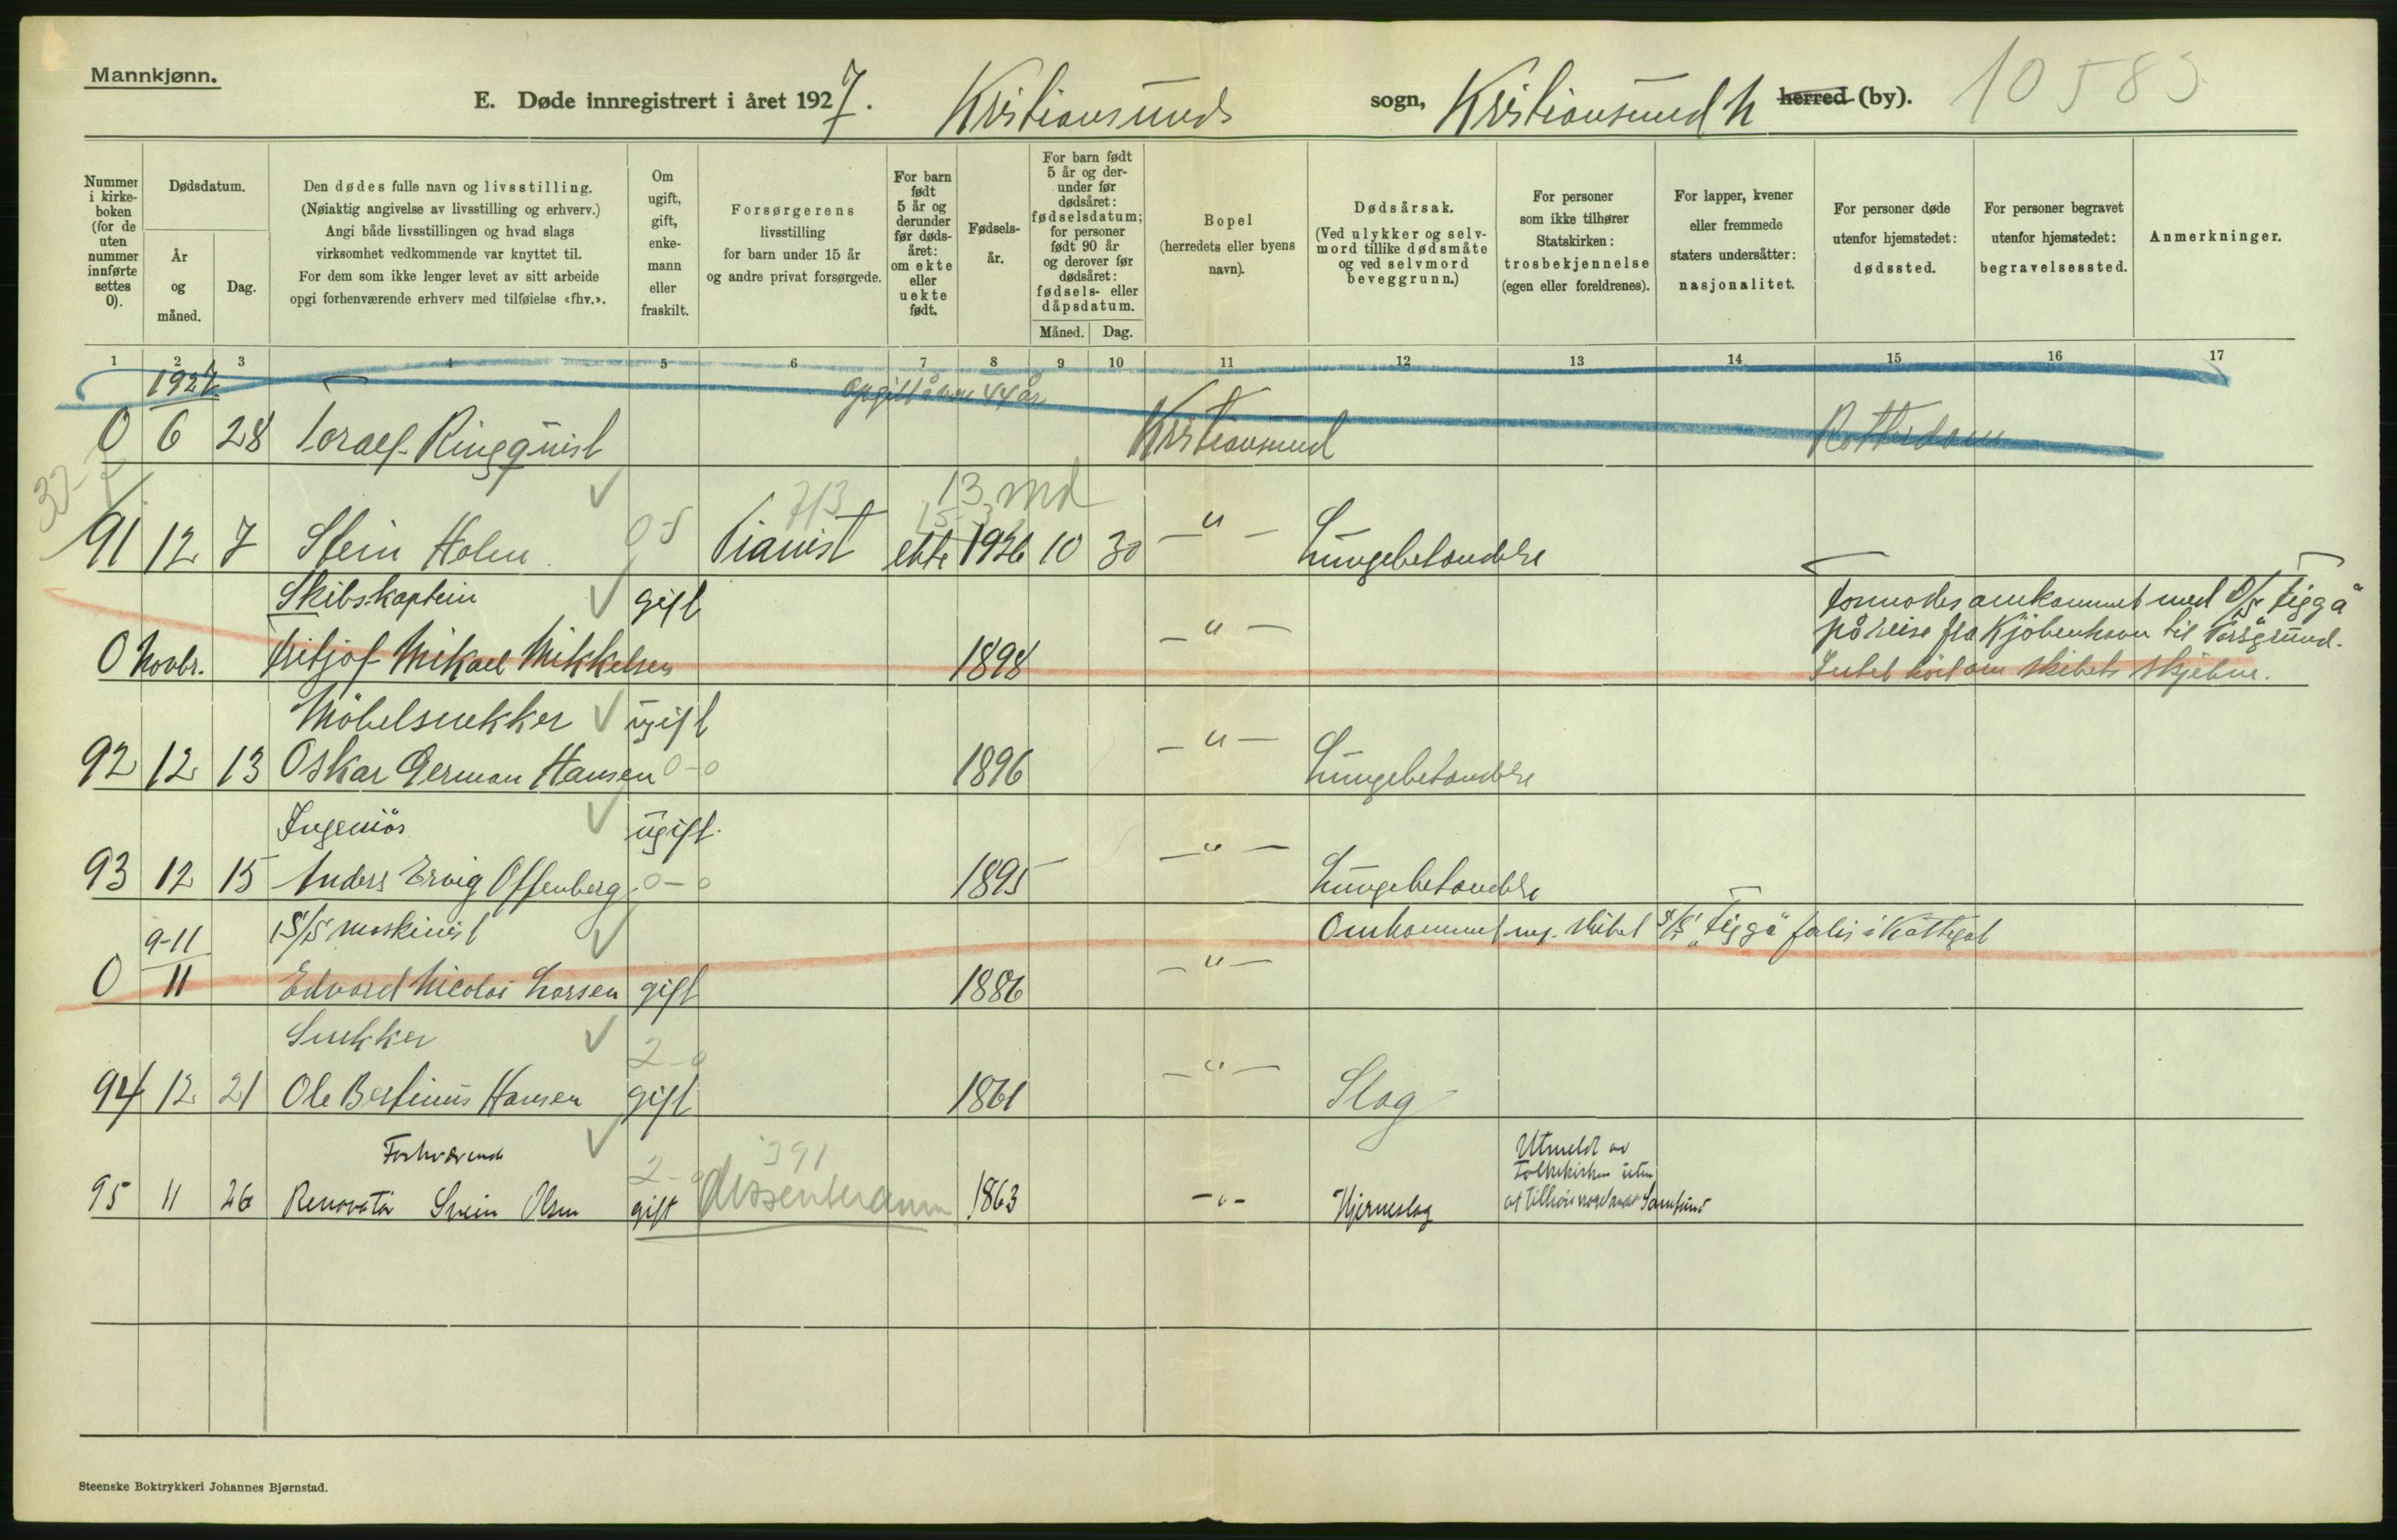 Mannkjønn.
E. Døde innregistrert i året 1927. Kristiansunds sogn, Kristiansund N herred (by). 10583
Nummer i kirkeboken (for de uten nummer innførte settes 0).
Dødsdatum.
År og måned.
Dag.
Den dødes fulle navn og livsstilling.
(Nøiaktig angivelse av livsstilling og erhverv.)
Angi både livsstillingen og hvad slags
virksomhet vedkommende var knyttet til.
For dem som ikke lenger levet av sitt arbeide
opgi forhenværende erhverv med tilføielse «fhv.».
Om ugift, gift, enkemann eller fraskilt.
Forsørgerens
livsstilling
for barn under 15 år
og andre privat forsørgede.
For barn født 5 år og derunder før dødsåret: om ekte eller uekte født.
Fødselsår.
For barn født 5 år og derunder før dødsåret: fødselsdatum; for personer født 90 år og derover før dødsåret: fødsels- eller dåpsdatum.
Måned. Dag.
Bopel
(herredets eller byens
navn).
Dødsårsak.
(Ved ulykker og selvmord tillike dødsmåte og ved selvmord beveggrunn.)
For personer
som ikke tilhører
Statskirken:
trosbekjennelse
(egen eller foreldrenes).
For lapper, kvener
eller fremmede
staters undersåtter:
nasjonalitet.
For personer døde
utenfor hjemstedet:
dødssted.
For personer begravet
utenfor hjemstedet:
begravelsessted.
Anmerkninger.
1 2 3 4 5 6 7 8 9 10 11 12 13 14 15 16 17
1927
Opgitt å være 44 år
0 6 28 Toralf Ringquist Kristiansund Rotterdam
713 13 md
91 12 7 Stein Holm 0-5 Pianist ekte 1926 10 30 —"— Lungebetændelse
Skibskaptein gift
Formodes omkommet med D/S "Figga"
på reise fra Kjöbenhavn til Porsgrund.
0 Novbr. Fritjof Mikael Mikkelsen 1898 —"— Intet hört om skibets skjebne.
Möbelsnekker ugift
92 12 13 Oskar German Hansen 0-0 1896 —"— Lungebetændelse
Ingeniör ugift
93 12 15 Anders Ervig Offenberg 0-0 1895 —"— Lungebetændelse
9-11 S/S maskinist Omkommet skibet S/S "Figga" forlis i Kattegat
0 11 Edvard Nicolai Larsen gift 1886 —"—
Snekker 2-0
94 12 21 Ole Bertinus Hansen gift 1861 —"— Slag
Forhværende 2-0 391 Utmeldt av
Folkekirken uten
95 11 26 Renovatör Svein Olsen gift dissenterdom 1863 —"— Hjerneslag at tilhöre noget andet Samfund
Steenske Boktrykkeri Johannes Bjørnstad.